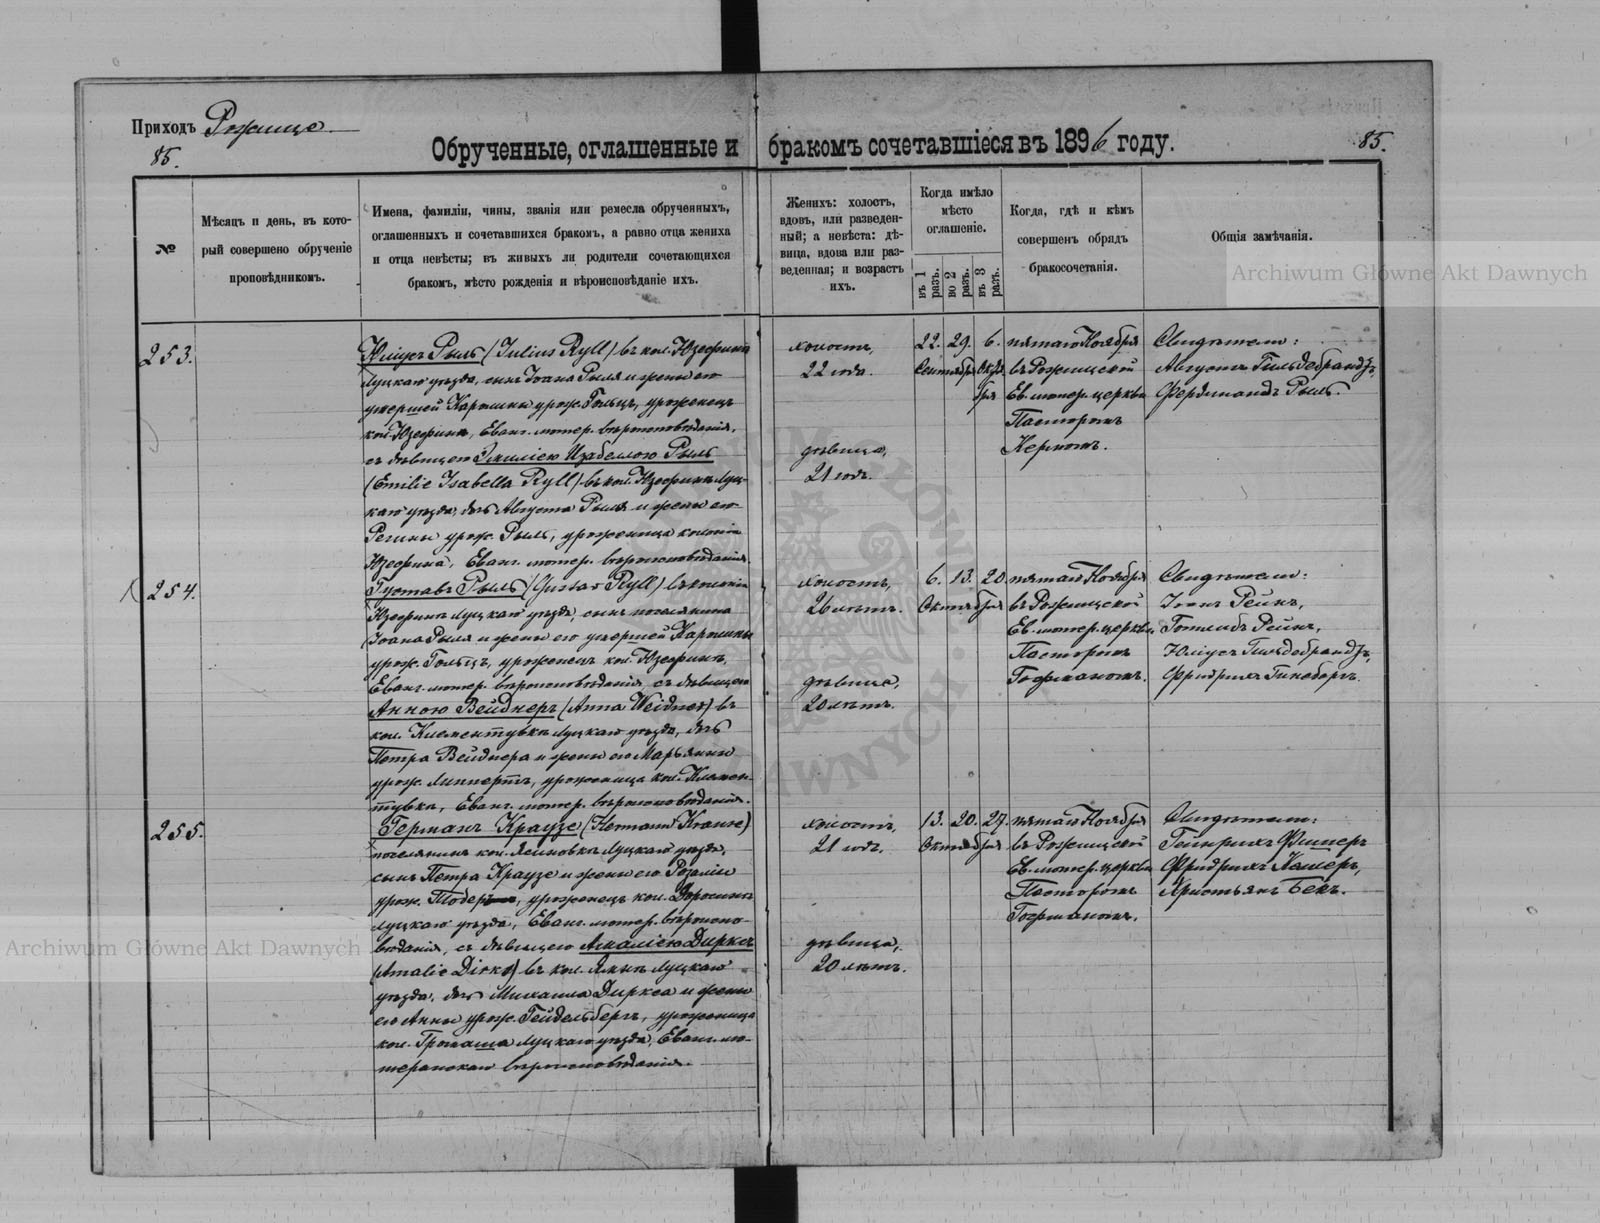 Приходъ Рожище
85.
Обрученные, оглашенные и бракомъ сочетавшіеся въ 1896 году.
85.
№
Мѣсяцъ и день, въ кото-
рый совершено обрученіе
проповѣдникомъ.
Имена, фамиліи, чины, званія или ремесла обрученныхъ,
оглашенныхъ и сочетавшихся бракомъ, а равно отца жениха
и отца невѣсты; въ живыхъ ли родители сочетающихся
бракомъ, мѣсто рожденія и вѣроисповѣданіе ихъ.
Женихъ: холостъ,
вдовъ, или разведен-
ный; а невѣста: дѣ-
вица, вдова или раз-
веденная; и возрастъ
ихъ.
Когда имѣло
мѣсто
оглашеніе.
въ 1 разъ.
во 2 разъ.
въ 3 разъ.
Когда, гдѣ и кѣмъ
совершенъ обрядъ
бракосочетанія.
Общія замѣчанія.
Archiwum Główne Akt Dawnych
253.
Юліусъ Рыль (Julius Ryll) въ кол. Юзефинѣ
Луцкаго уѣзда, сынъ Іоана Рыля и жены его
умершей Каролины урож. Гольцъ, уроженецъ
кол. Юзефинъ, Еванг. лютер. вѣроисповѣданія,
съ дѣвицею Эмиліею Изабеллою Рыль
(Emilie Isabella Ryll) въ кол. Юзефинѣ Луц-
каго уѣзда, дочь Августа Рыля и жены его
Регины урож. Рыль, уроженица колоніи
Юзефина, Еванг. лютер. вѣроисповѣданія.
холостъ,
22 года.
дѣвица,
21 годъ.
22. 29. 6.
Сентября Октя-
бря
пятаго Ноября
въ Рожищской
Ев. лютер. церкви
Пасторомъ
Кермомъ.
Свидѣтели:
Августъ Гильдебрандтъ,
Фердинандъ Рыль.
254.
Густавъ Рыль (Gustav Ryll) въ колоніи
Юзефинъ Луцкаго уѣзда, сынъ поселянина
Іоана Рыля и жены его умершей Каролины
урож. Гольцъ, уроженецъ кол. Юзефинъ,
Еванг. лютер. вѣроисповѣданія, съ дѣвицею
Анною Вейднеръ (Anna Weidner) въ
кол. Клементувкѣ Луцкаго уѣзда, дочь
Петра Вейднера и жены его Марьянны
урож. Липпертъ, уроженица кол. Клемен-
тувка, Еванг. лютер. вѣроисповѣданія.
холостъ,
26 лѣтъ.
дѣвица,
20 лѣтъ.
6. 13. 20.
Октября
пятаго Ноября
въ Рожищской
Ев. лютер. церкви
Пасторомъ
Гофманомъ.
Свидѣтели:
Іоанъ Рейнъ,
Готлибъ Рейнъ,
Юліусъ Гильдебрандтъ,
Фридрихъ Гинсборгъ.
255.
Германъ Краузе (Hermann Krause)
поселянинъ кол. Яхимовка Луцкаго уѣзда,
сынъ Петра Краузе и жены его Розаліи
урож. Тобер, уроженецъ кол. Доросинъ
Луцкаго уѣзда, Еванг. лютер. вѣроиспо-
вѣданія, съ дѣвицею Амаліею Дирксъ
(Amalie Dirks) въ кол. Луцкаго
уѣзда, дочь Михаила Диркса и жены
его Анны урож. Гейдельбергъ, уроженица
кол. Громаша Луцкаго уѣзда, Еванг. лю-
теранскаго вѣроисповѣданія.
холостъ,
21 годъ.
дѣвица,
20 лѣтъ.
13. 20. 27.
Октября
пятаго Ноября
въ Рожищской
Ев. лютер. церкви
Пасторомъ
Гофманомъ.
Свидѣтели:
Гейнрихъ Фишеръ
Фридрихъ Кошеръ,
Христьянъ Бекъ.
Archiwum Główne Akt Dawnych